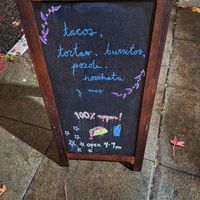 tacos,
tortas, burritos,
pozole,
horchata
y mas
100% vegan!
open 4-9pm